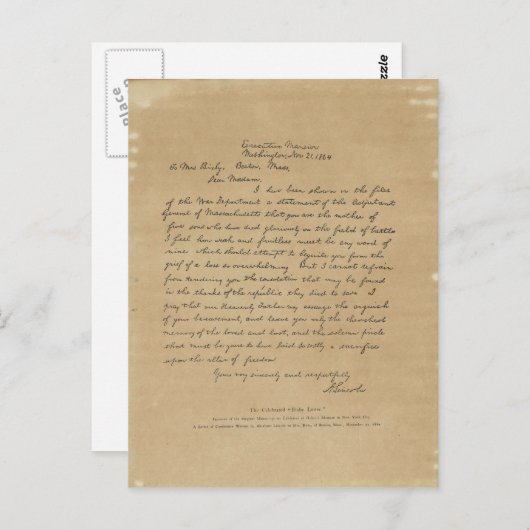 Executive Mansion
Washington, Nov 21, 1864
To Mrs Bixby, Boston, Mass,
Dear Madam,
I have been shown in the files
of the War Department a statement of the Adjutant
General of Massachusetts that you are the mother of
five sons who have died gloriously on the field of battle
I feel how weak and fruitless must be any word of
mine which should attempt to beguile you from the
grief of a loss so overwhelming But I cannot refrain
from tendering you the consolation that may be found
in the thanks of the republic they died to save I
pray that our Heavenly Father may assuage the anguish
of your bereavement, and leave you only the cherished
memory of the loved and lost, and the solemn pride
that must be yours to have laid so costly a sacrifice
upon the altar of freedom
Yours very sincerely and respectfully
A Lincoln
The Celebrated "Bixby Letter."
place
zazzle